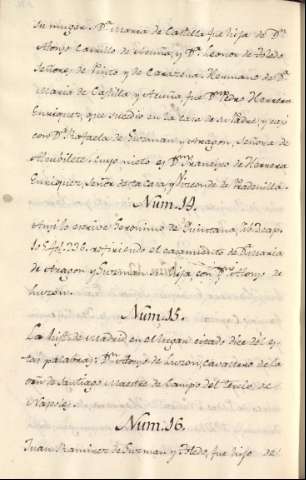 su muger. Dª. Maria de Castilla fue hija de Dⁿ.
Alonso Carrillo de Acuña, y Dª. Leonor de Toledo
Señores de Pinto y de Caracena. Hermano de Dª.
Maria de Castilla y Acuña fue Dⁿ. Pedro Herrera
Enriquez, que sucedio en la Casa de su Padre, y casó
con Dª. Rafaela de Guzman y Aragon, Señora de
cuyo nieto es Dⁿ. Francisco de Herrera
Enriquez, Señor de esta casa y Vizconde de
Núm. 14.
Assi lo escrive Geronimo de Quintana,
refiriendo el casamiento de Dª. Maria
de Aragon y Guzman su hija con Dⁿ. Alonso de
Luzon.
Núm. 15.
La hist. de Madrid en el lugar citado dice
estas palabras: Dⁿ. Alonso de Luzon, cavallero de la
orden de Santiago Maestre de Campo del tercio de
Napoles.
Núm. 16.
Juan Ramirez de Guzman y Toledo, fue hijo de